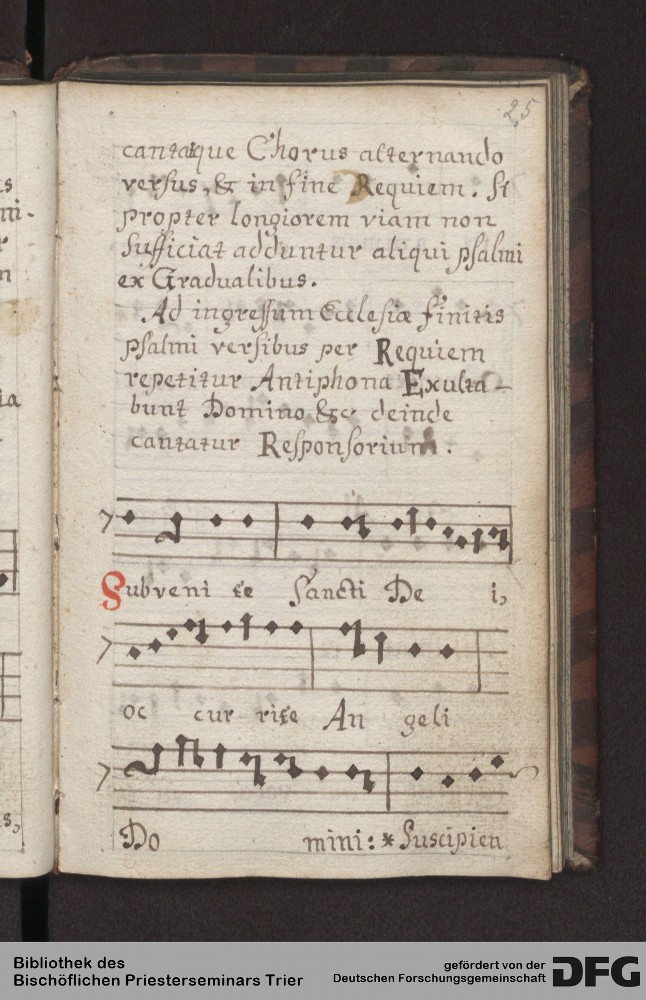 25
cantatque Chorus alternando
versus, & in fine Requiem. Si
propter longiorem viam non
sufficiat adduntur aliqui psalmi
ex Gradualibus.
Ad ingressum Ecclesiæ finitis
psalmi versibus per Requiem
repetitur Antiphona Exulta-
bunt Domino &c deinde
cantatur Responsorium.
Subveni te Sancti De i,
oc cur rite An geli
Do mini: * Suscipien
Bibliothek des
Bischöflichen Priesterseminars Trier
gefördert von der
Deutschen Forschungsgemeinschaft
DFG